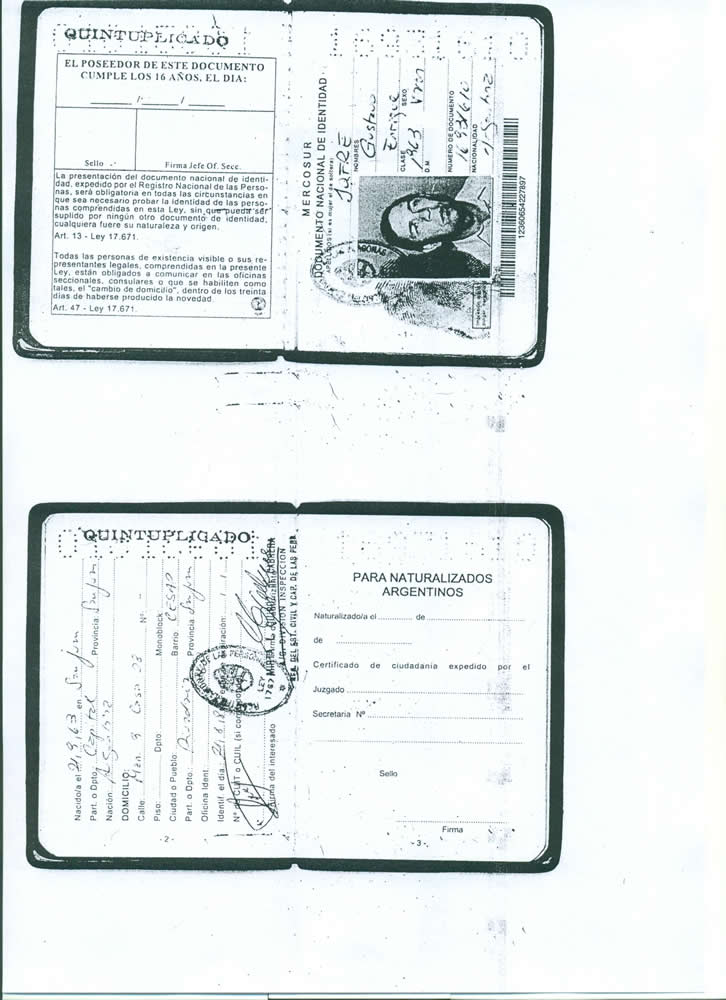 QUINTUPLICADO
EL POSEEDOR DE ESTE DOCUMENTO
CUMPLE LOS 16 AÑOS, EL DIA:
/ /
Sello
Firma Jefe Of. Secc.
La presentación del documento nacional de identi-
dad, expedido por el Registro Nacional de las Perso-
nas, será obligatoria en todas las circunstancias en
que sea necesario probar la identidad de las perso-
nas comprendidas en esta Ley, sin que pueda ser
suplido por ningún otro documento de identidad,
cualquiera fuere su naturaleza y origen.
Art. 13 - Ley 17.671.
Todas las personas de existencia visible o sus re-
presentantes legales, comprendidas en la presente
Ley, están obligados a comunicar en las oficinas
seccionales, consulares o que se habiliten como
tales, el "cambio de domicilio", dentro de los treinta
días de haberse producido la novedad.
Art. 47 - Ley 17.671.
MERCOSUR
DOCUMENTO NACIONAL DE IDENTIDAD
APELLIDOS (si es mujer el de soltera)
JUFRÉ
NOMBRES
Gustavo
Enrique
CLASE SEXO
1963
D.M.
NUMERO DE DOCUMENTO
NACIONALIDAD
12360654227897
- 1 -
QUINTUPLICADO
Nacido/a el 21,9,63 en San Juan
Part. o Dpto. Capital Provincia: San Juan
Nación
DOMICILIO:
Calle: Casa 28 Nº:
Piso: Dpto: Monoblock
Ciudad o Pueblo: Barrio CESAP
Part. o Dpto.: Provincia San Juan
Oficina Ident.
Identif. el día:
Nº de CUIT o CUIL (si
Firma del interesado
LEY
DIVISION INSPECCION
DEL EST. CIVIL Y CAP. DE LAS PERS.
- 2 -
PARA NATURALIZADOS
ARGENTINOS
Naturalizado/a el de
de
Certificado de ciudadania expedido por el
Juzgado
Secretaria Nº
Sello
Firma
- 3 -